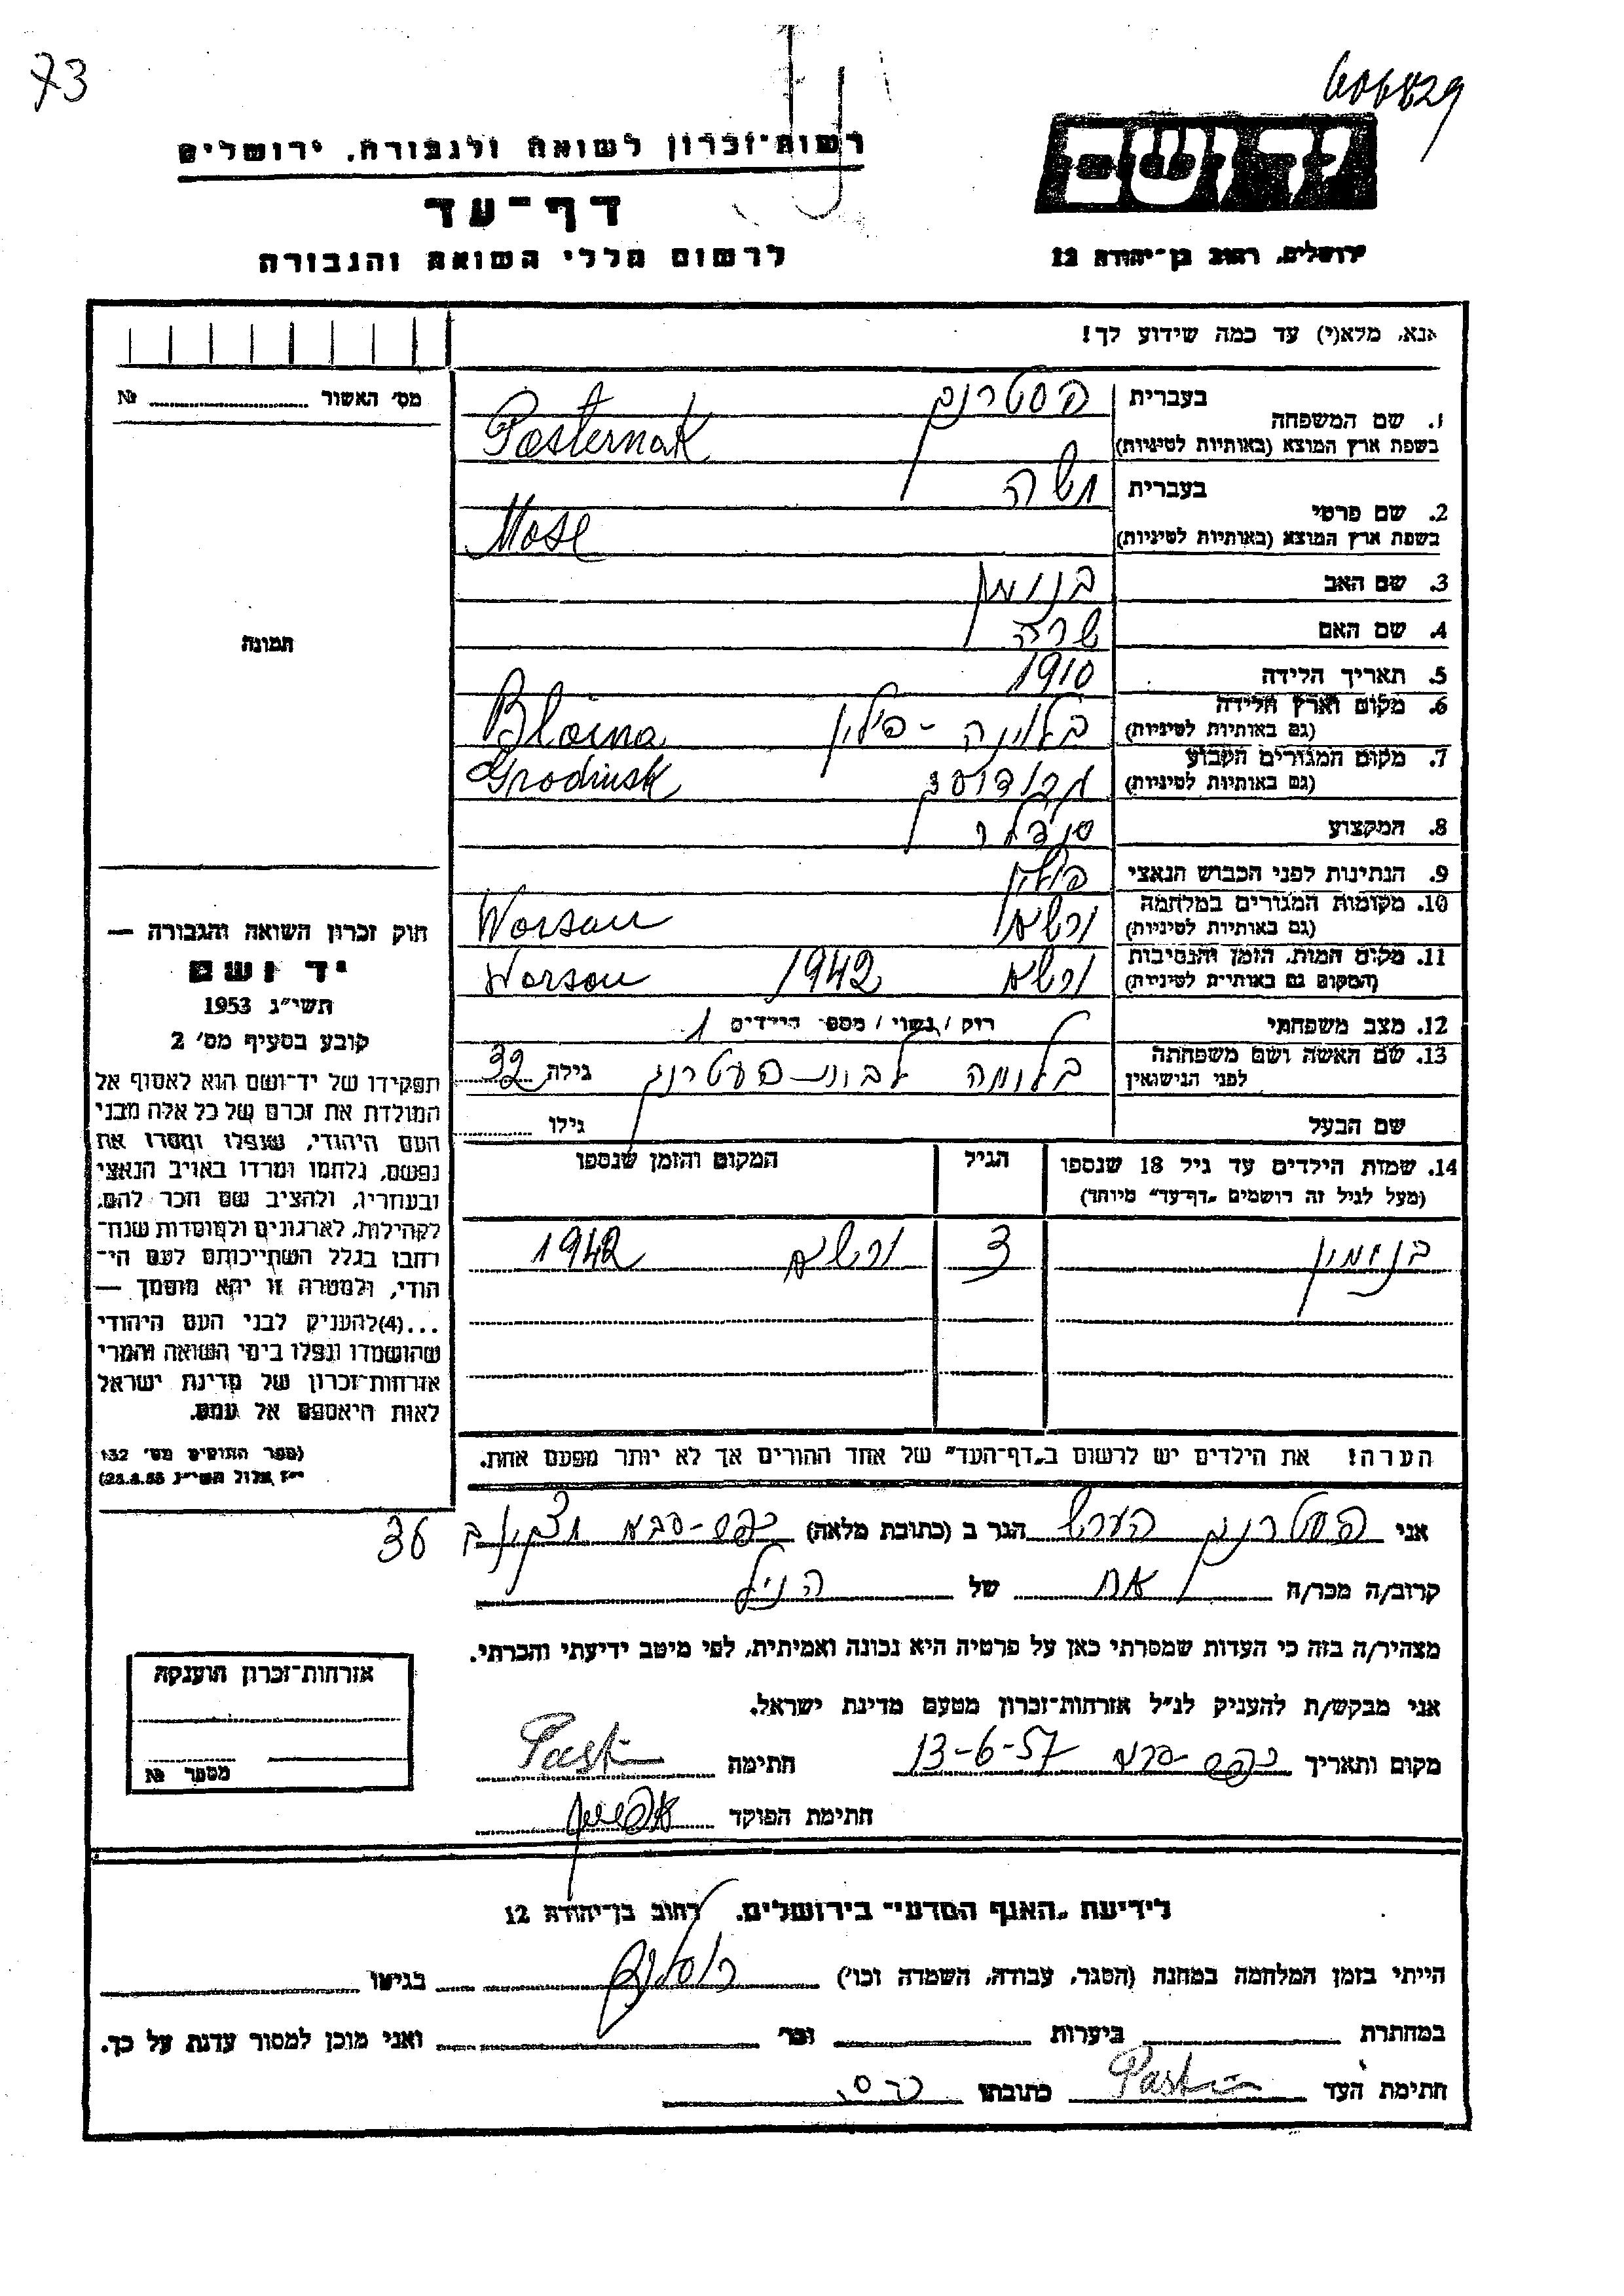 73
606829
רשות־זכרון לשואה ולגבורה, ירושלים
יד ושם
דף־עד
לרשום חללי השואה והגבורה
ירושלים, רחוב בן־יהודה 12
אנא, מלא(י) עד כמה שידוע לך!
מס׳ האשור № 
1. שם המשפחה
בעברית פסטרנק
בשפת ארץ המוצא (באותיות לטיניות) Pasternak
2. שם פרטי
בעברית משה
בשפת ארץ המוצא (באותיות לטיניות) Mose
3. שם האב בנימין
4. שם האם שרה
5. תאריך הלידה 1910
6. מקום וארץ הלידה
(גם באותיות לטיניות) בלוינה - פולין Bloina
7. מקום המגורים הקבוע
(גם באותיות לטיניות) Grodinsk
8. המקצוע סנדלר
9. הנתינות לפני הכבוש הנאצי פולין
10. מקומות המגורים במלחמה
(גם באותיות לטיניות) ורשא Worsau
11. מקום המות, הזמן והנסיבות
(המקום גם באותיות לטיניות) ורשא 1942 Worsau
12. מצב משפחתי רוק / נשוי / מספר הילדים 1
13. שם האשה ושם משפחתה
לפני הנישואין בלומה גילה 32
שם הבעל גילו
תמונה
חוק זכרון השואה והגבורה —
יד ושם
תשי״ג 1953
קובע בסעיף מס׳ 2
תפקידו של יד־ושם הוא לאסוף אל
המולדת את זכרם של כל אלה מבני
העם היהודי, שנפלו ומסרו את
נפשם, נלחמו ומרדו באויב הנאצי
ובעוזריו, ולהציב שם וזכר להם,
לקהילות, לארגונים ולמוסדות שנח־
רבו בגלל השתייכותם לעם הי־
הודי, ולמטרה זו יהא מוסמך —
...(4)להעניק לבני העם היהודי
שהושמדו ונפלו בימי השואה והמרי
אזרחות־זכרון של מדינת ישראל
לאות היאספם אל עמם.
(ספר החוקים מס׳ 132
י״ז אלול תשי״ג 28.8.53)
14. שמות הילדים עד גיל 18 שנספו
(מעל לגיל זה רושמים „דף־עד״ מיוחד)
הגיל
המקום והזמן שנספו
בנימין 3 ורשא 1942
הערה: את הילדים יש לרשום ב„דף־העד״ של אחד ההורים אך לא יותר מפעם אחת.
אני פסטרנק הערש הגר ב (כתובת מלאה) כפר-סבא 36
קרוב/ה מכר/ה אח של הנ״ל
מצהיר/ה בזה כי העדות שמסרתי כאן על פרטיה היא נכונה ואמיתית, לפי מיטב ידיעתי והכרתי.
אני מבקש/ת להעניק לנ״ל אזרחות־זכרון מטעם מדינת ישראל.
מקום ותאריך כפר-סבא 13-6-57 חתימה
חתימת הפוקד
אזרחות־זכרון הוענקה
מספר №
לידיעת „האגף המדעי״ בירושלים, רחוב בן־יהודה 12
הייתי בזמן המלחמה במחנה (הסגר, עבודה, השמדה וכו׳) בגיטו
במחתרת ביערות וכו׳ ואני מוכן למסור עדות על כך.
חתימת העד כתובתו כ״ס.